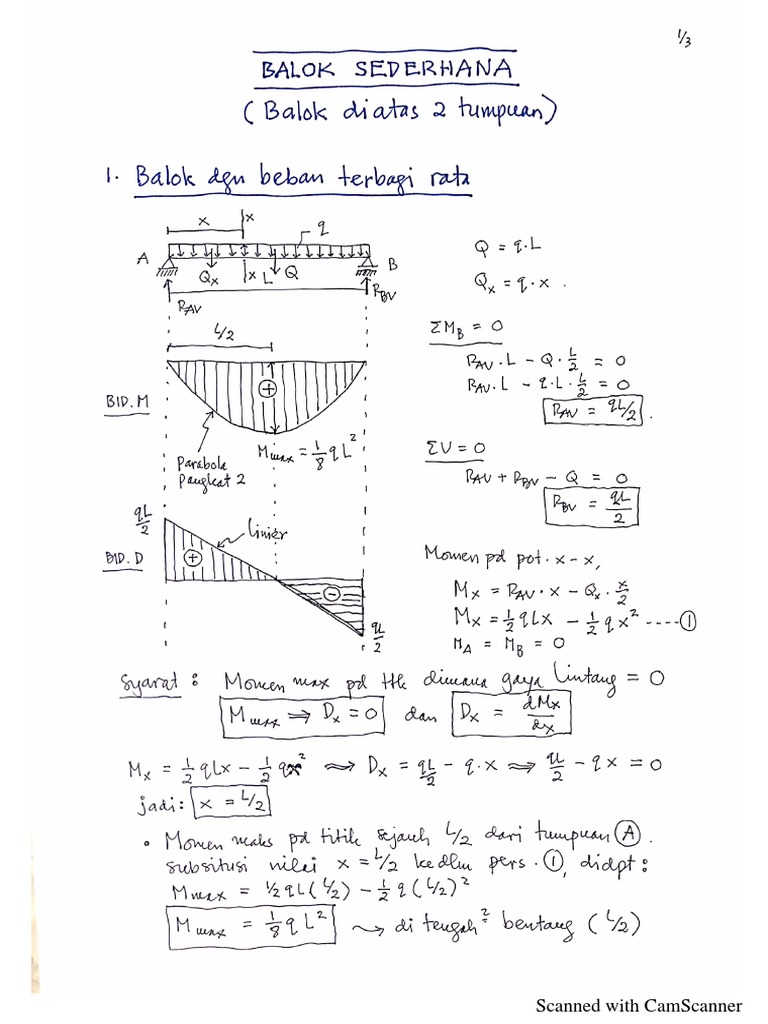 1/3
BALOK SEDERHANA
(Balok diatas 2 tumpuan)
1. Balok dgn beban terbagi rata
x
x
q
A
B
Qx
x
L
Q
RAV
RBV
L/2
BID. M
+
Mmax = 1/8 qL²
Parabola
Pangkat 2
qL/2
linier
BID. D
+
−
qL/2
Q = q·L
Qx = q·x.
ΣMB = 0
RAV·L − Q·L/2 = 0
RAV·L − q·L·L/2 = 0
RAV = qL/2.
ΣV = 0
RAV + RBV − Q = 0
RBV = qL/2
Momen pd pot. x-x,
Mx = RAV·x − Qx·x/2
Mx = 1/2 qLx − 1/2 qx² ----①
MA = MB = 0
Syarat : Momen max pd ttk dimana gaya lintang = 0
Mmax ⇒ Dx = 0 dan Dx = dMx/dx
Mx = 1/2 qLx − 1/2 qx² ⇒ Dx = qL/2 − q·x ⇒ qL/2 − qx = 0
jadi: x = L/2
• Momen maks pd titik sejauh L/2 dari tumpuan Ⓐ.
subsitusi nilai x = L/2 kedlm pers. ①, didpt :
Mmax = 1/2 qL(L/2) − 1/2 q(L/2)²
Mmax = 1/8 qL² ⇝ di tengah² bentang (L/2)
Scanned with CamScanner